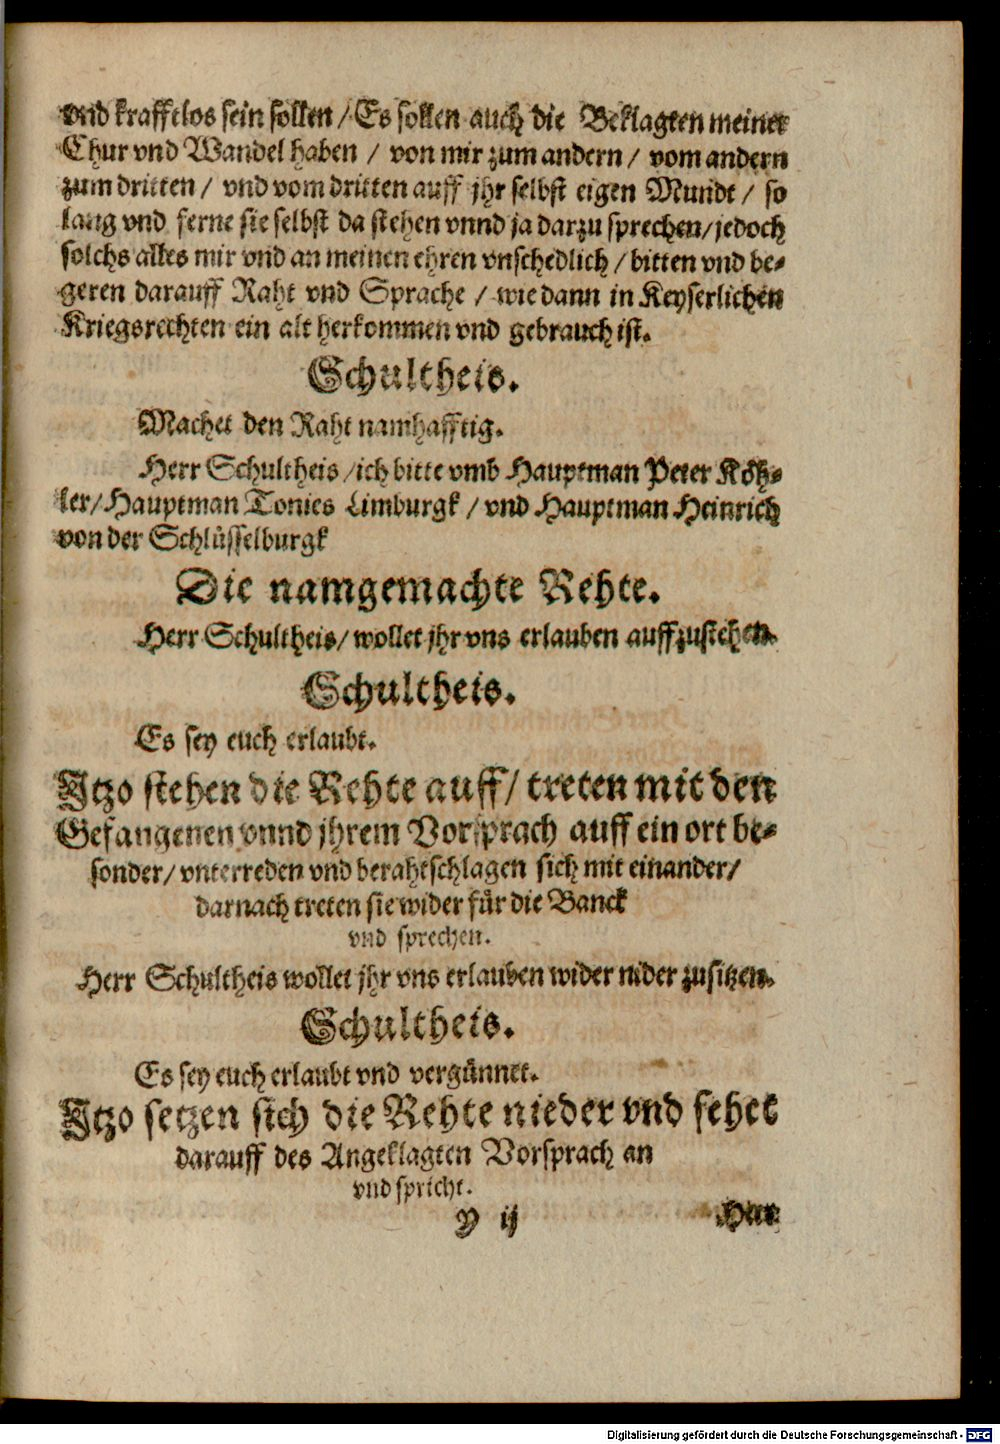 vnd krafftlos sein sollen / Es sollen auch die Beklagten meiner
Chur vnd Wandel haben / von mir zum andern / vom andern
zum dritten / vnd vom dritten auff jhr selbst eigen Mundt / so
lang vnd ferne sie selbst da stehen vnnd ja darzu sprechen / jedoch
solchs alles mir vnd an meinen ehren vnschedlich / bitten vnd be-
geren darauff Raht vnd Sprache / wie dann in Keyserlichen
Kriegsrechten ein alt herkommen vnd gebrauch ist.
Schultheis.
Machet den Raht namhafftig.
Herr Schultheis / ich bitte vmb Hauptman Peter Köh-
ler / Hauptman Tonies Limburgk / vnd Hauptman Heinrich
von der Schlüsselburgk
Die namgemachte Rehte.
Herr Schultheis / wollet jhr vns erlauben auffzustehen.
Schultheis.
Es sey euch erlaubt.
Itzo stehen die Rehte auff / treten mit den
Gefangenen vnnd jhrem Vorsprach auff ein ort be-
sonder / vnterreden vnd berahtschlagen sich mit einander /
darnach treten sie wider für die Banck
vnd sprechen.
Herr Schultheis wollet jhr vns erlauben wider nider zusitzen.
Schultheis.
Es sey euch erlaubt vnd vergünnet.
Itzo setzen sich die Rehte nieder vnd fehet
darauff des Angeklagten Vorsprach an
vnd spricht.
Y ij Herr
Digitalisierung gefördert durch die Deutsche Forschungsgemeinschaft - DFG